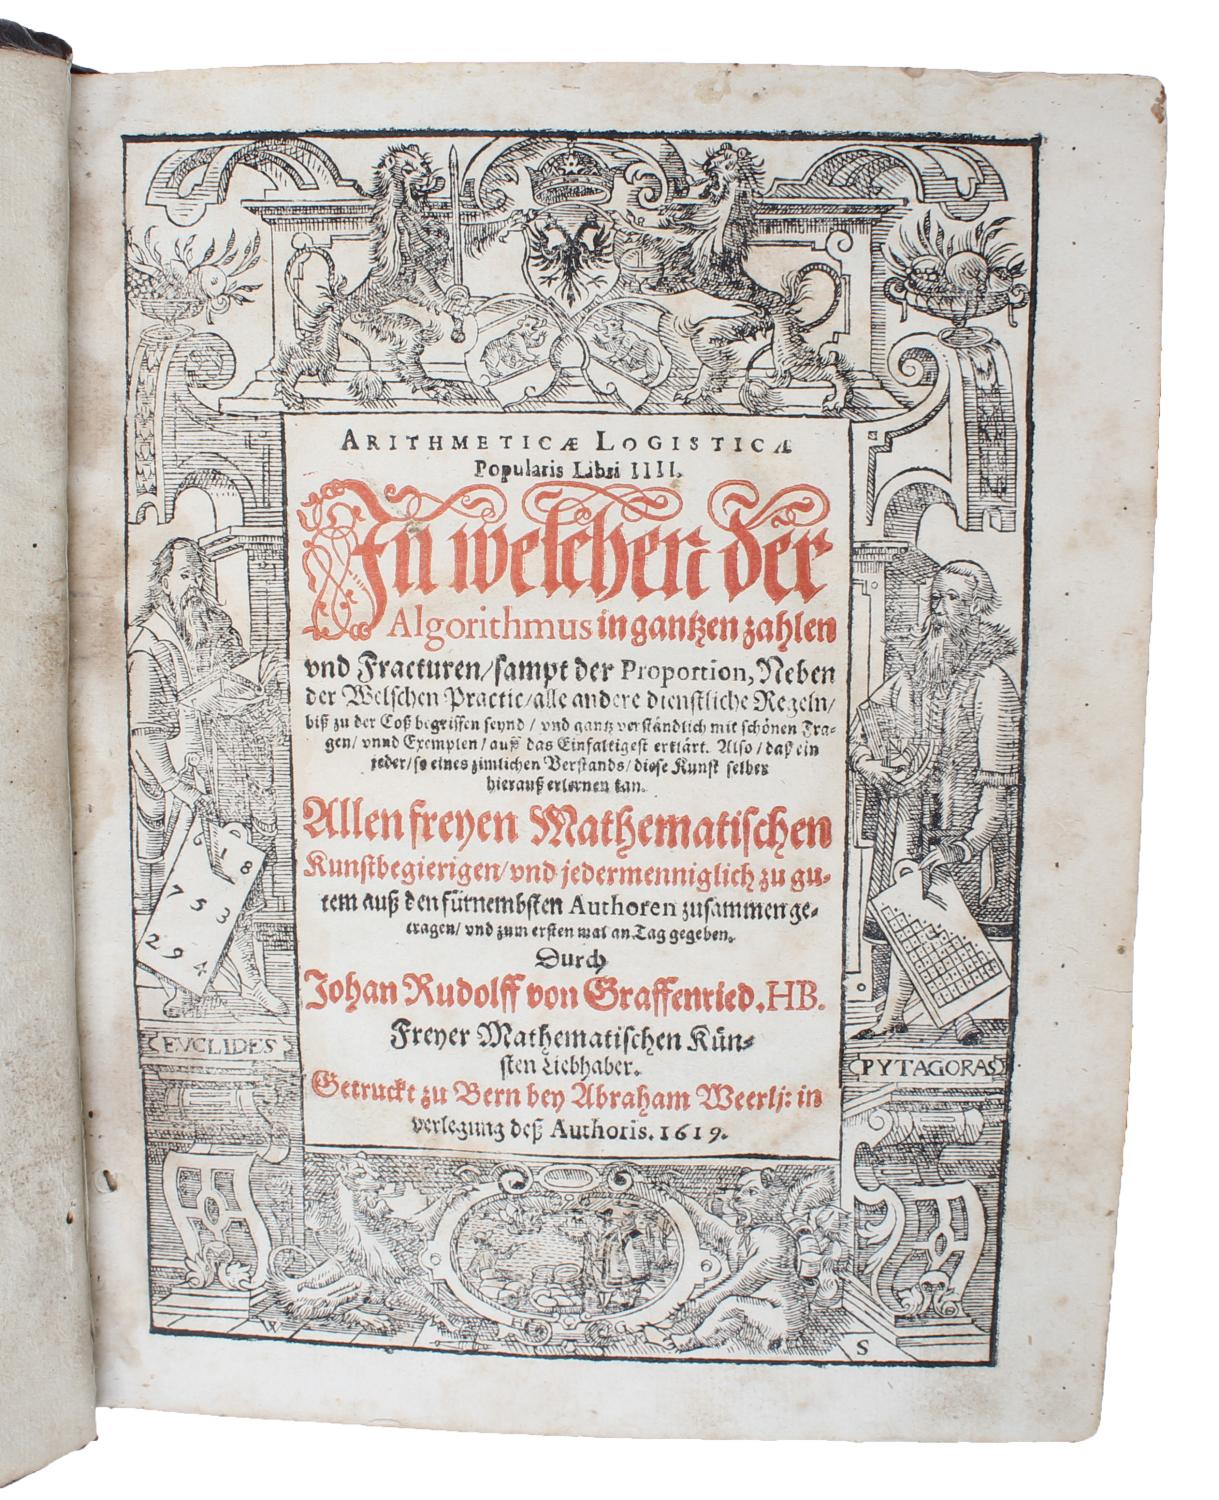 ARITHMETICÆ LOGISTICA
Popularis Libri IIII.
In welchen der
Algorithmus in gantzen zahlen
vnd Fracturen/sampt der Proportion, Neben
der Welschen Practic/alle andere dienstliche Regeln/
biß zu der Coß begriffen seynd / vnd gantz verständlich mit schönen Fra-
gen/ vnnd Exemplen/ auff das Einfaltigest erklärt. Also / daß ein
jeder/ so eines zimlichen Verstands/ diese Kunst selber
hierauß erlernen kan.
Allen freyen Mathematischen
Kunstbegierigen/vnd jedermenniglich zu gu-
tem auß den fürnembsten Authoren zusammen ge-
tragen/ vnd zum ersten mal an Tag gegeben.
Durch
Johan Rudolff von Graffenried. HB.
Freyer Mathematischen Kün-
sten Liebhaber.
Getruckt zu Bern bey Abraham Weerlj: in
verlegung deß Authoris. 1619.
1 8
7 5 3
2 9 4
EVCLIDES
PYTAGORAS
S